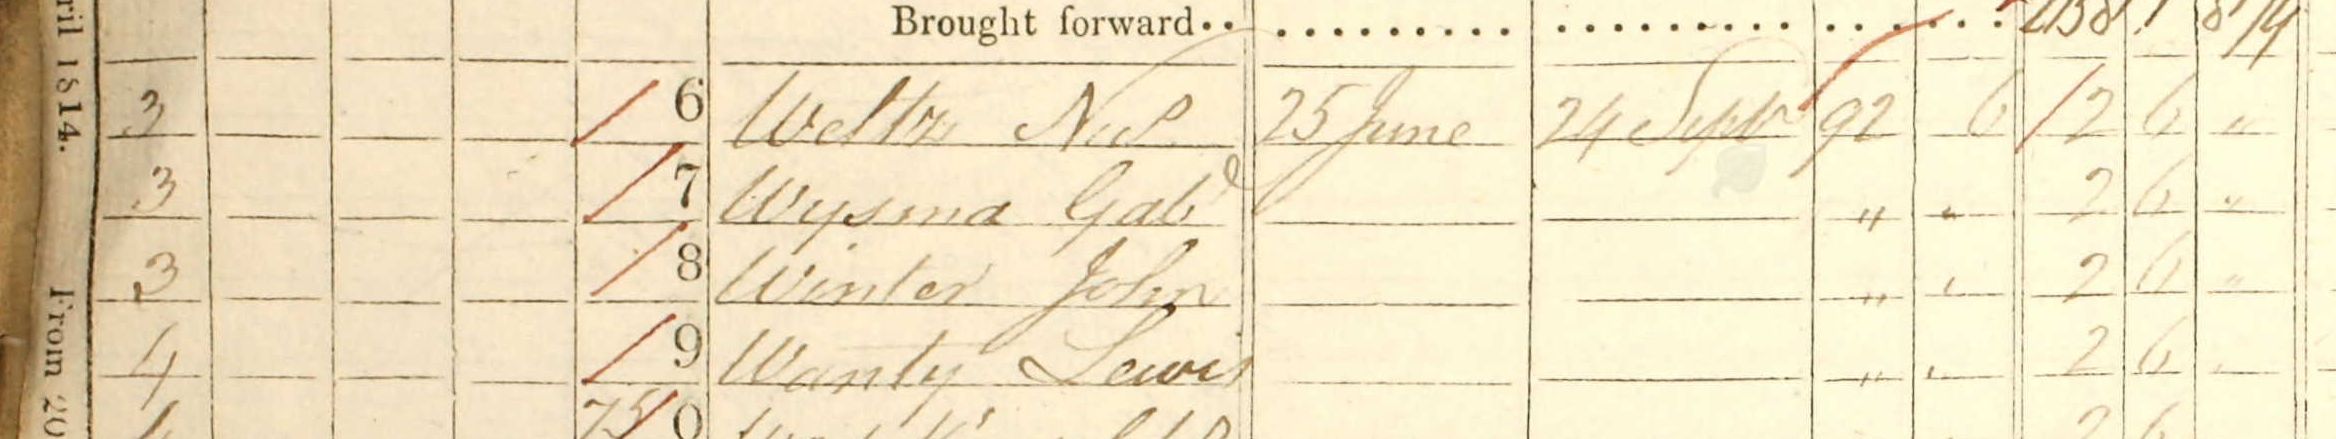 ril 1814.
From 20
Brought forward
3 6 Weltz Nichs 25 June 24 Septr 92 6 2 6 "
3 7 Wysma Gabl " " 2 6 "
3 8 Winter John " " 2 6 "
4 9 Wanty Lewis " " 2 6 "
75 0 2 6